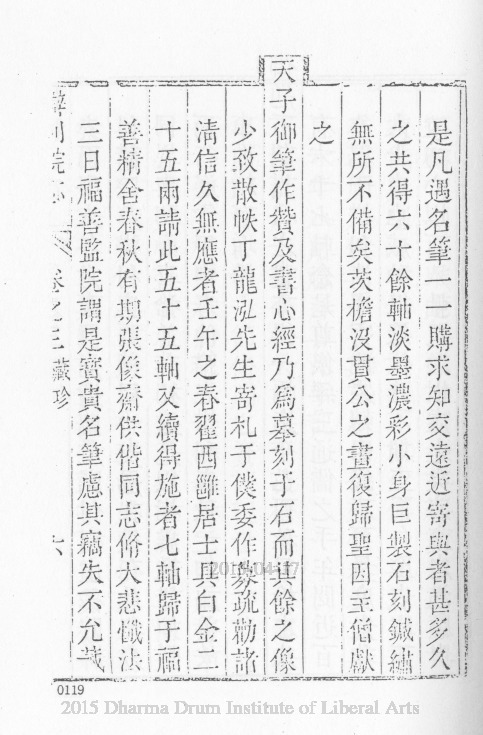 是凡遇名筆一一購求知交遠近寄與者甚多久
之共得六十餘軸淡墨濃彩小身巨製石刻鍼繡
無所不備矣茨檐沒貫公之畫復歸聖因主僧獻
之
天子御筆作贊及書心經乃爲摹刻于石而其餘之像
少致散帙丁龍泓先生寄札于僕委作募疏勸諸
清信久無應者壬午之春翟西雝居士具白金二
十五兩請此五十五軸又續得施者七軸歸于福
善精舍春秋有期張像齋供偕同志脩大悲懺法
三日福善監院謂是寶貴名筆慮其竊失不允藏
院志 卷之三 藏珍 六
2015-04-17
0119
2015 Dharma Drum Institute of Liberal Arts